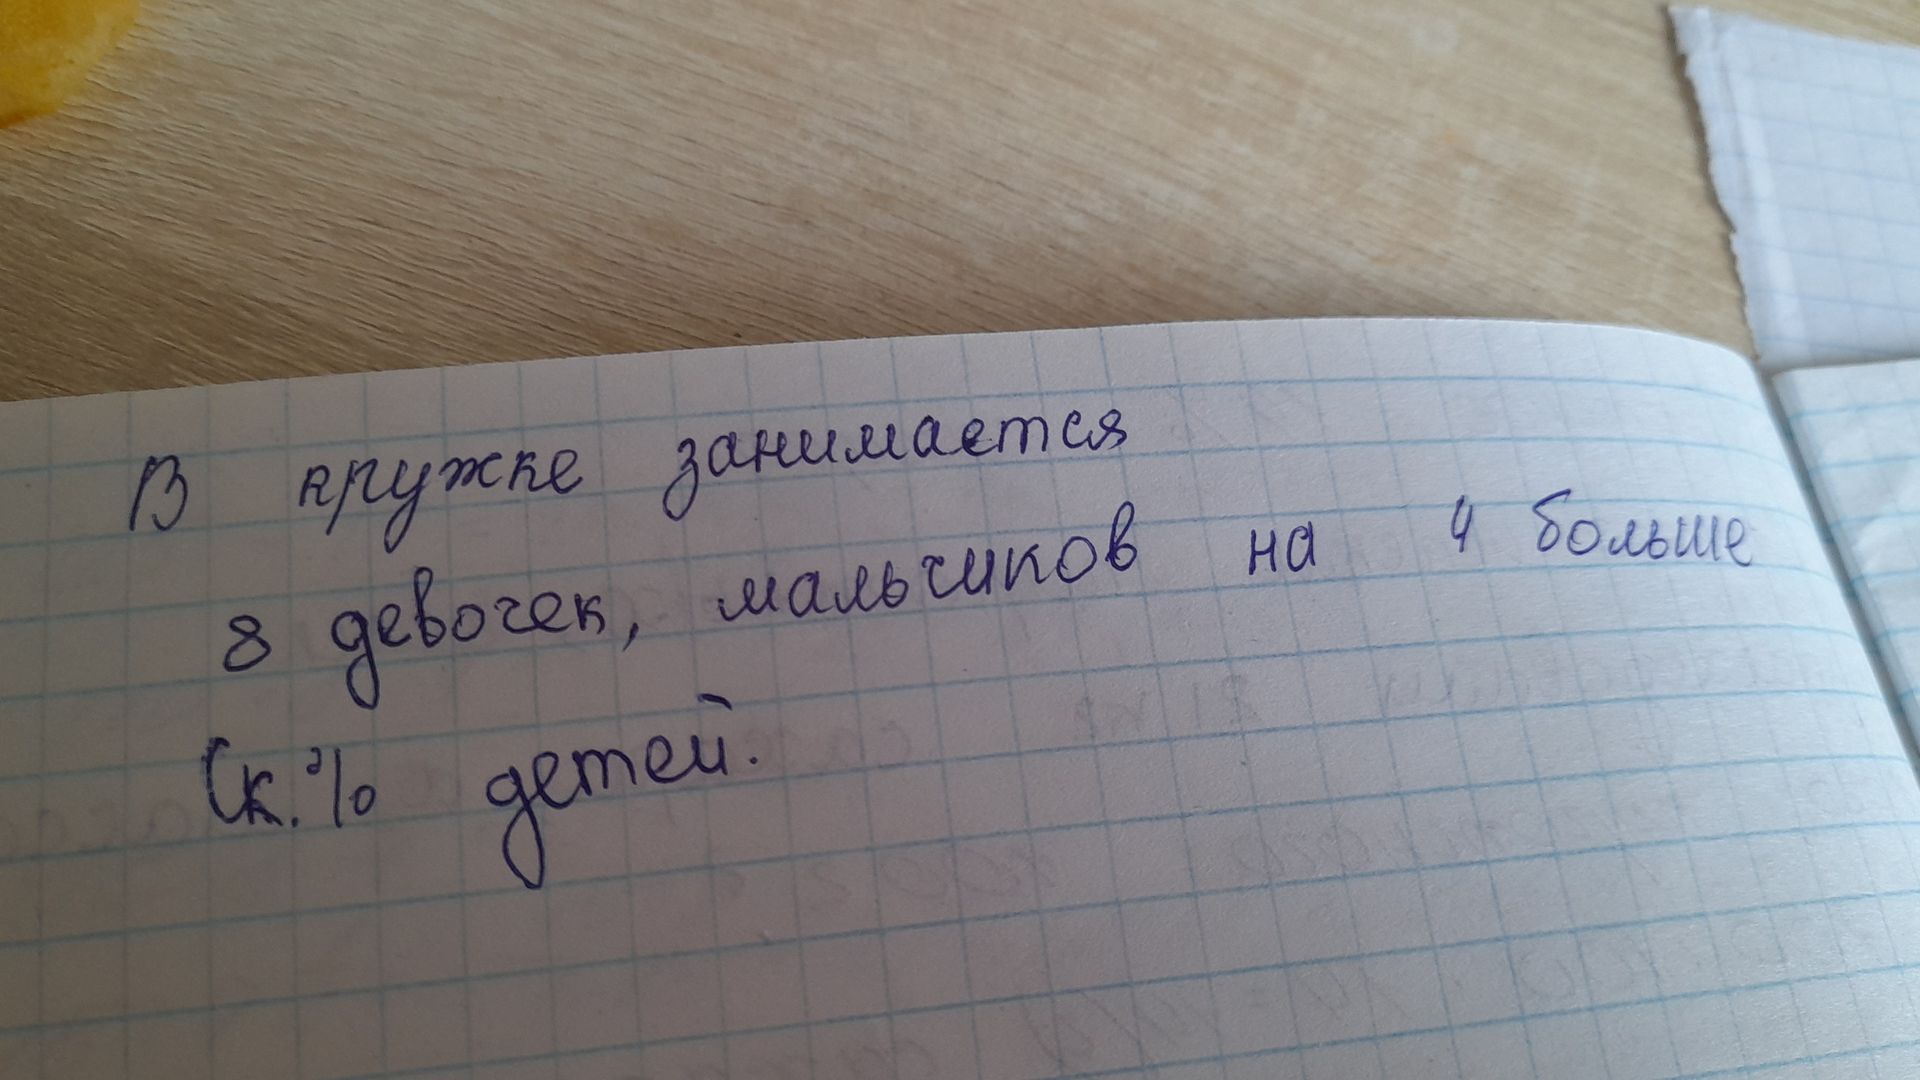 В кружке занимается
8 девочек, мальчиков на 4 больше
Ск.% детей.